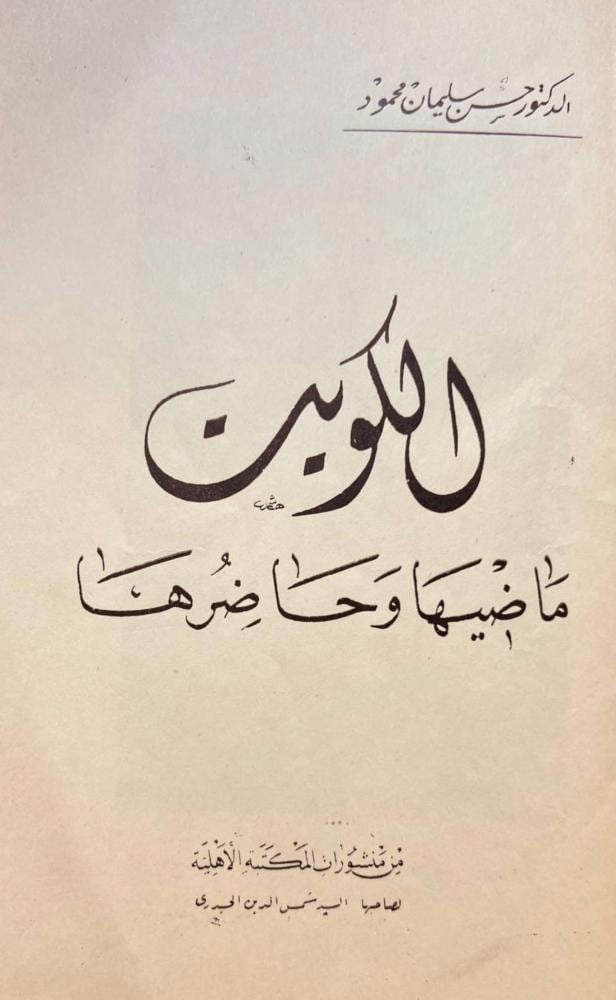 الدكتور حسن سليمان محمود
الكويت
هاشم
مَاضْيِهَا وَحَاضِرُهَا
مِنْ مَنْشُورَاتِ المَكْتَبَةِ الأَهْلِيَّة
لصاحبها السيد شمس الدين الحيدري